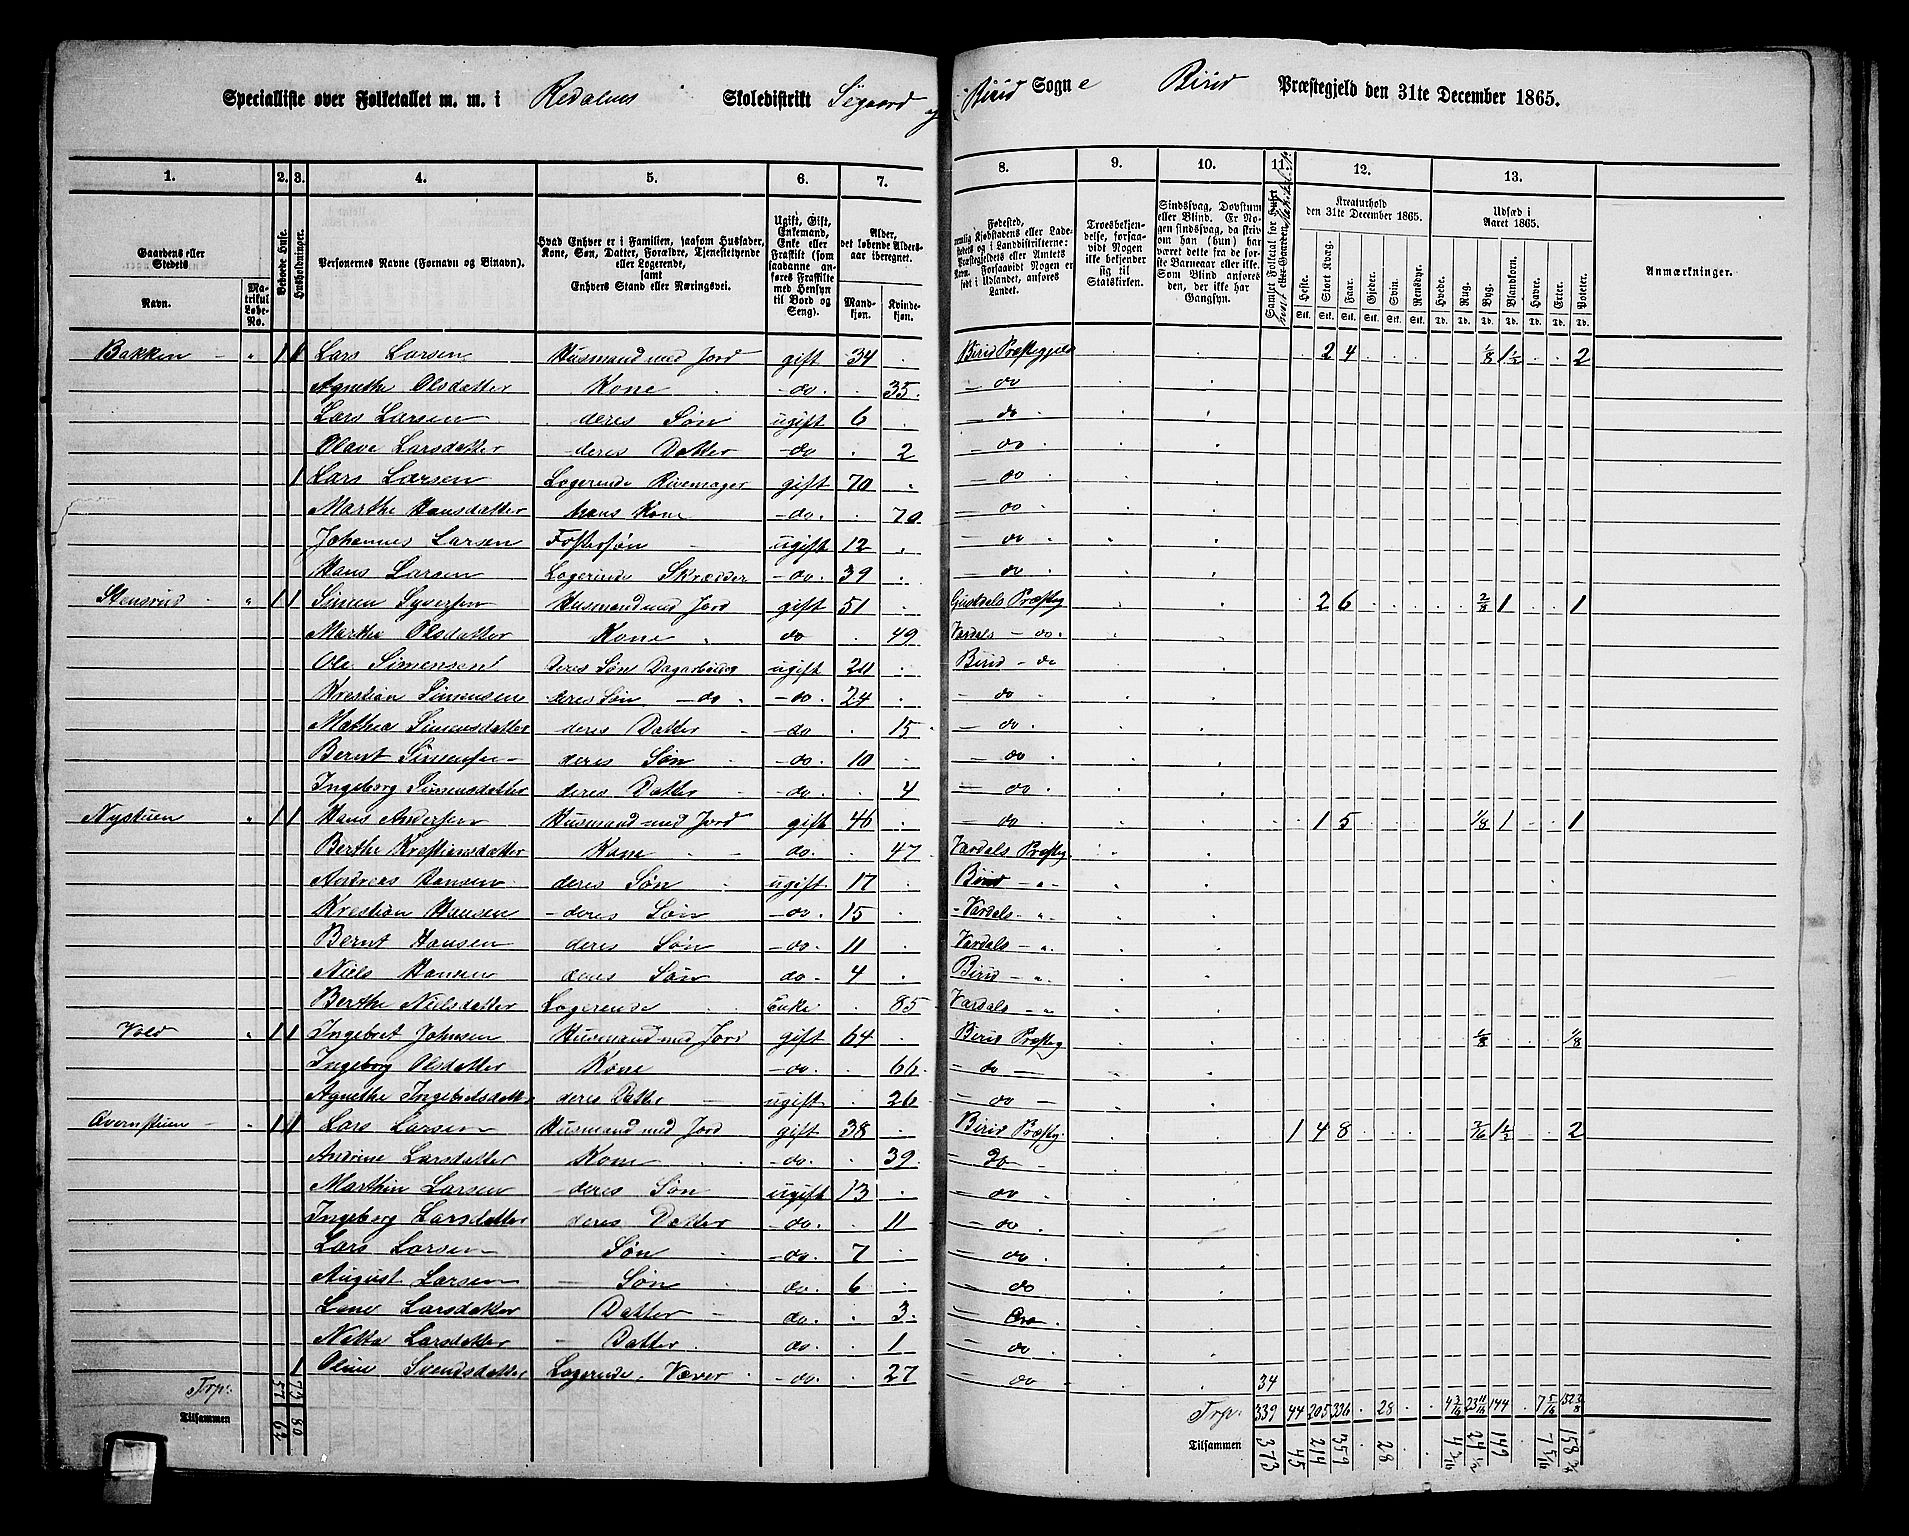 Specialliste over Folketallet m. m. i Redalens Skoledistrikt Søgaard og Birid Sogne Birid Præstegjeld den 31te December 1865.
1. 2. 3. 4. 5. 6. 7. 8. 9. 10. 11. 12. 13.
Gaardens eller Stedets
Navn. Matrikul Løbe-No.
Bebodde Huse.
Husholdninger.
Personernes Navne (Fornavn og Binavn).
Hvad Enhver er i Familien, saasom Husfader, Kone, Søn, Datter, Forældre, Tjenestetyende eller Logerende, samt Enhvers Stand eller Næringsvei.
Ugift, Gift, Enkemand, Enke eller Fraskilt (som saadanne anføres Fraskilte med Hensyn til Bord og Seng).
Alder, det løbende Alders-aar iberegnet.
Mandkjøn. Kvindekjøn.
Troesbekjendelse, forsaavidt Nogen ikke bekjender sig til Statskirken.
Kreaturhold den 31te December 1865.
Udsæd i Aaret 1865.
Anmærkninger.
Heste. Stort Kvæg. Faar. Gjeder. Svin. Rensdyr. Hvede. Rug. Byg. Blandkorn. Havre. Erter. Poteter.
Bakken " 1 1 Lars Larsen Husmand med Jord gift 34 Birid Præstegjeld 2 4 1/8 1½ 2
Agnethe Olsdatter Kone do. 35 do
Lars Larsen deres Søn ugift 6 do
Olave Larsdatter deres Datter do 2 do
1 Lars Larsen Logerende Rivemager gift 70 do
Marthe Hansdatter hans Kone do. 70 do
Johannes Larsen Fostersøn ugift 12 do
Hans Larsen Logerende Skrædder do. 39 do
Stensrud " 1 1 Simen Syversen Husmand med Jord gift 51 Gusdals Præsteg 2 6 2/8 1 1
Marthe Olsdatter Kone do 49 Vardals do.
Ole Simensen deres Søn Dagarbeider ugift 20 Birid do
Krestian Simensen deres Søn do do. 24 do
Mathea Simensdatter deres Datter do 15 do
Bernt Simensen deres Søn do. 10 do
Ingeborg Simensdatter deres Datter do. 4 do
Nystuen " 1 1 Hans Andersen Husmand med Jord gift 46 do 1 5 1/8 1 1
Berthe Krestiansdatter Kone do. 47 Vardals Præsteg.
Andreas Hansen deres Søn ugift 17 Birid "
Krestian Hansen deres Søn do 15 Vardals "
Bernt Hansen deres Søn do. 11 Vardals "
Niels Hansen deres Søn do. 4 Birid "
Berthe Nielsdatter Logerende Enke 85 Vardals "
Vold " 1 1 Ingebret Johnsen Husmand med Jord gift 64 Birid Præsteg 1/8 1/8
Ingeborg Olsdatter Kone do. 66 do
Agnethe Ingebretsdatt. deres Datter ugift 26 do
Avernstuen " 1 1 Lars Larsen Husmand med Jord gift 38 Birid Præsteg. 1 4 8 3/16 1½ 2
Andrine Larsdatter Kone do. 39 do
Marthin Larsen deres Søn ugift 13 do
Ingeborg Larsdatter deres Datter do. 11 do
Lars Larsen Søn do. 7 do
August Larsen Søn do. 6 do
Lene Larsdatter Datter do. 3 do
Netta Larsdatter Datter do. 1 do
1 Oline Svendsdatter Logerende Væver do. 27 do 34
Trp: 57 73 Trp: 339 44 205 336 28 4 3/16 23 11/16 144 7 5/16 152 3/8
Tilsammen 62 80 Tilsammen 373 45 214 359 28 4 3/16 24 ½ 149 7 5/16 158